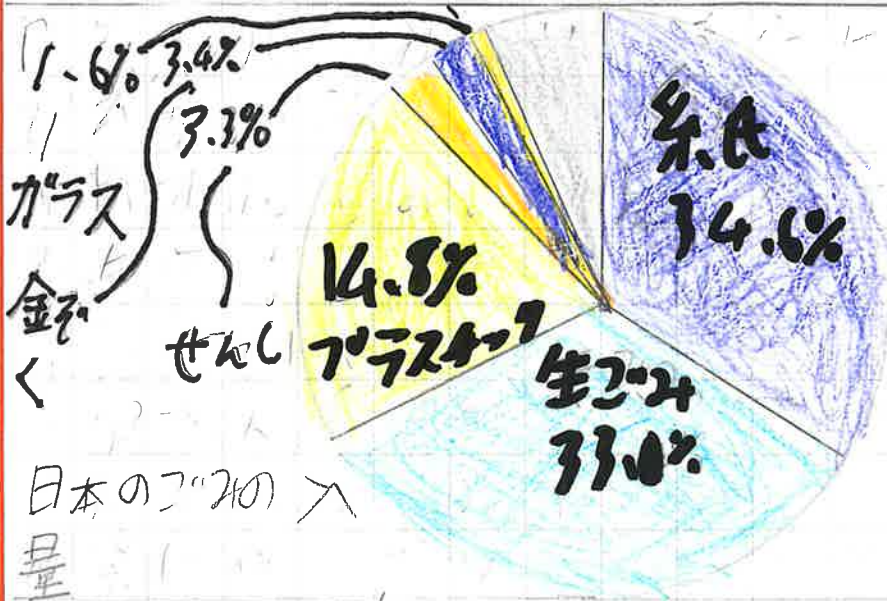 1.6%
3.4%
3.3%
ガラス
金ぞ
く
せんし
14.8%
プラスチック
紙
34.6%
生ごみ
日本のごみの
量